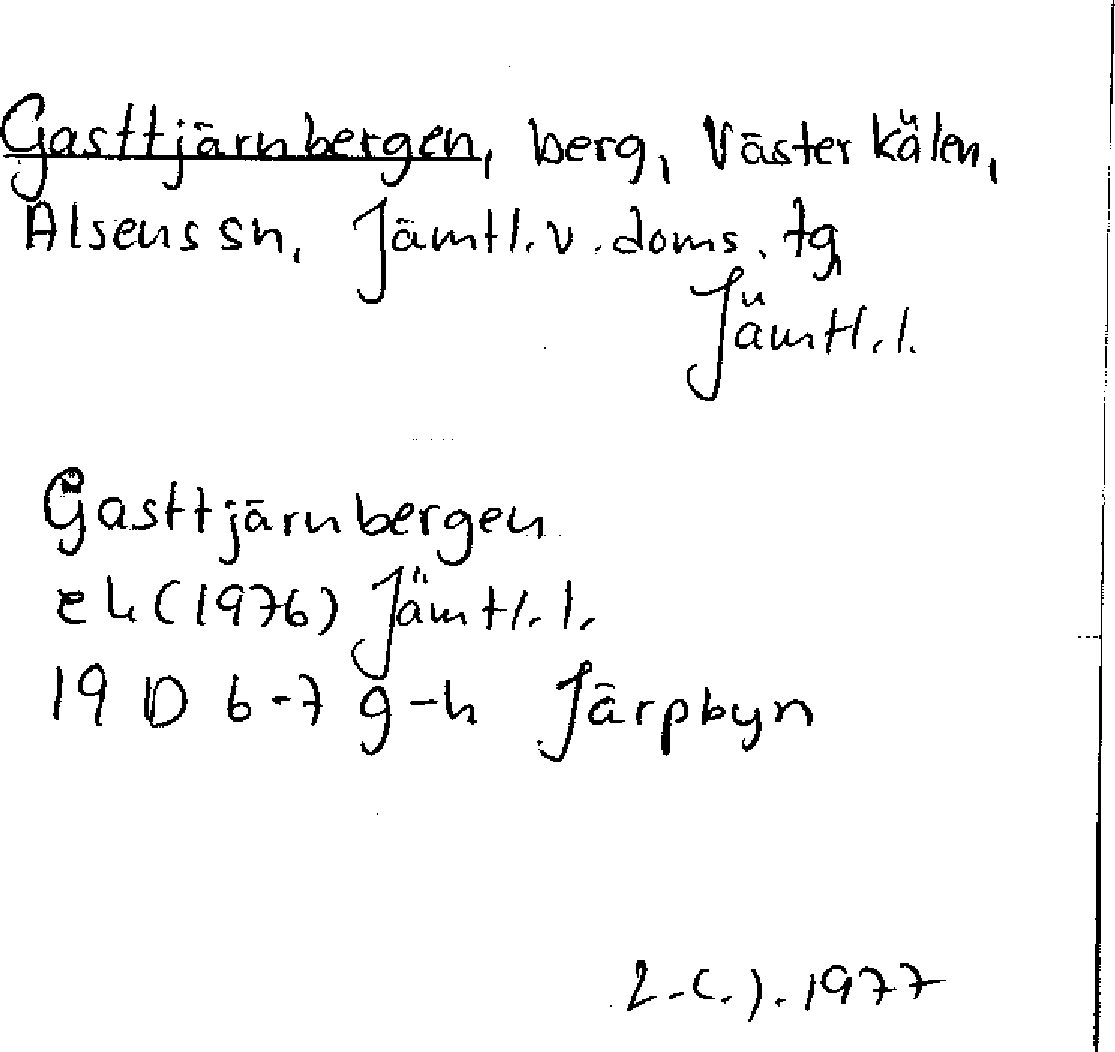 Gasttjärnbergen, berg, Västerkälen,
Alsens sn, Jämtl. v. doms. tg,
Jämtl. l.
Gasttjärnbergen
ek (1976) Jämtl. l.
19 D 6-7 g-h Järpbyn
1977